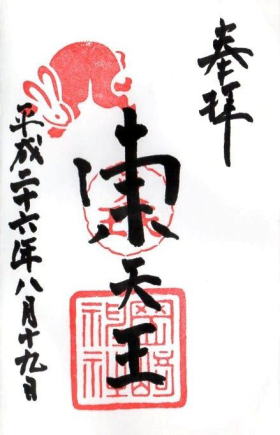 奉拝
東天王
岡崎神社
平成二十六年八月十九日